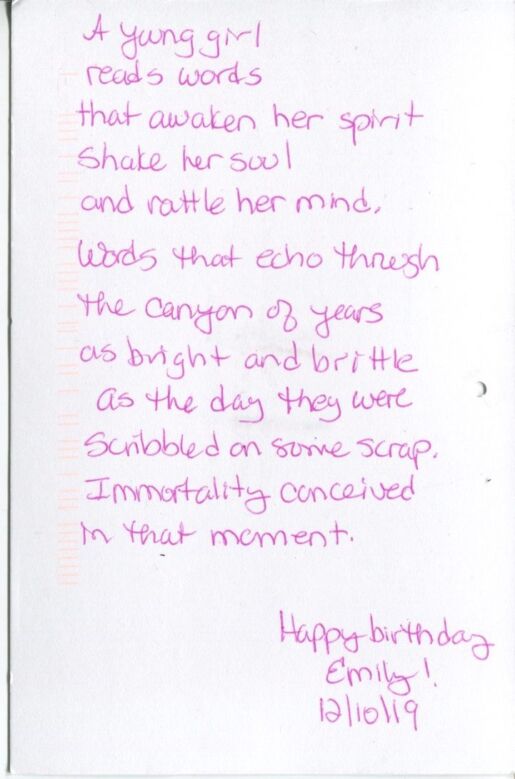 A young girl
reads words
that awaken her spirit
Shake her soul
and rattle her mind.
Words that echo through
the canyon of years
as bright and brittle
as the day they were
Scribbled on some scrap.
Immortality conceived
in that moment.
Happy birthday
Emily!
12/10/19